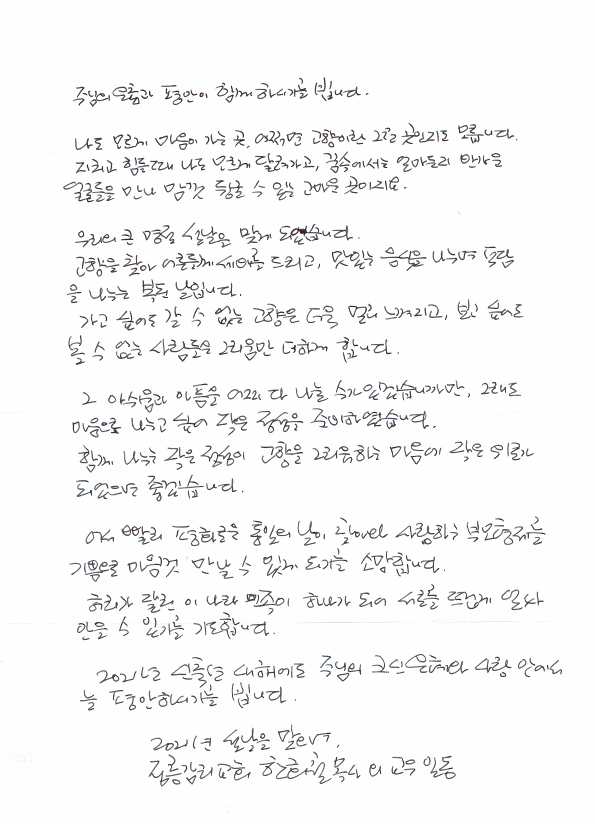 주님의 은총과 평안이 함께 하시기를 빕니다.
나도 모르게 마음이 가는 곳, 어쩌면 고향이란 그런 곳인지도 모릅니다.
지치고 힘들 때 나도 모르게 달려가고, 꿈속에서는 얼마든지 반가운
얼굴들을 만나 맘껏 뒹굴 수 있는 고마운 곳이지요.
우리의 큰 명절 설날을 맞게 되었습니다.
고향을 찾아 어른들께 세배를 드리고, 맛있는 음식을 나누며 덕담
을 나누는 복된 날입니다.
가고 싶어도 갈 수 없는 고향은 더욱 멀리 느껴지고, 보고 싶어도
볼 수 없는 사람들은 그리움만 더하게 합니다.
그 아쉬움과 아픔을 어찌 다 나눌 수가 있겠습니까만, 그래도
마음으로 나누고 싶어 작은 정성을 준비하였습니다.
함께 나누는 작은 정성이 고향을 그리워하는 마음에 작은 위로가
되었으면 좋겠습니다.
어서 빨리 평화로운 통일의 날이 찾아와 사랑하는 부모형제를
기쁨으로 마음껏 만날 수 있게 되기를 소망합니다.
허리가 잘린 이 나라 민족이 하나가 되어 서로를 뜨겁게 얼싸
안을 수 있기를 기도합니다.
2021년 신축년 새해에도 주님의 크신 은혜와 사랑 안에서
늘 평안하시기를 빕니다.
2021년 설날을 맞으며,
정릉감리교회 한희철 목사 외 교우 일동